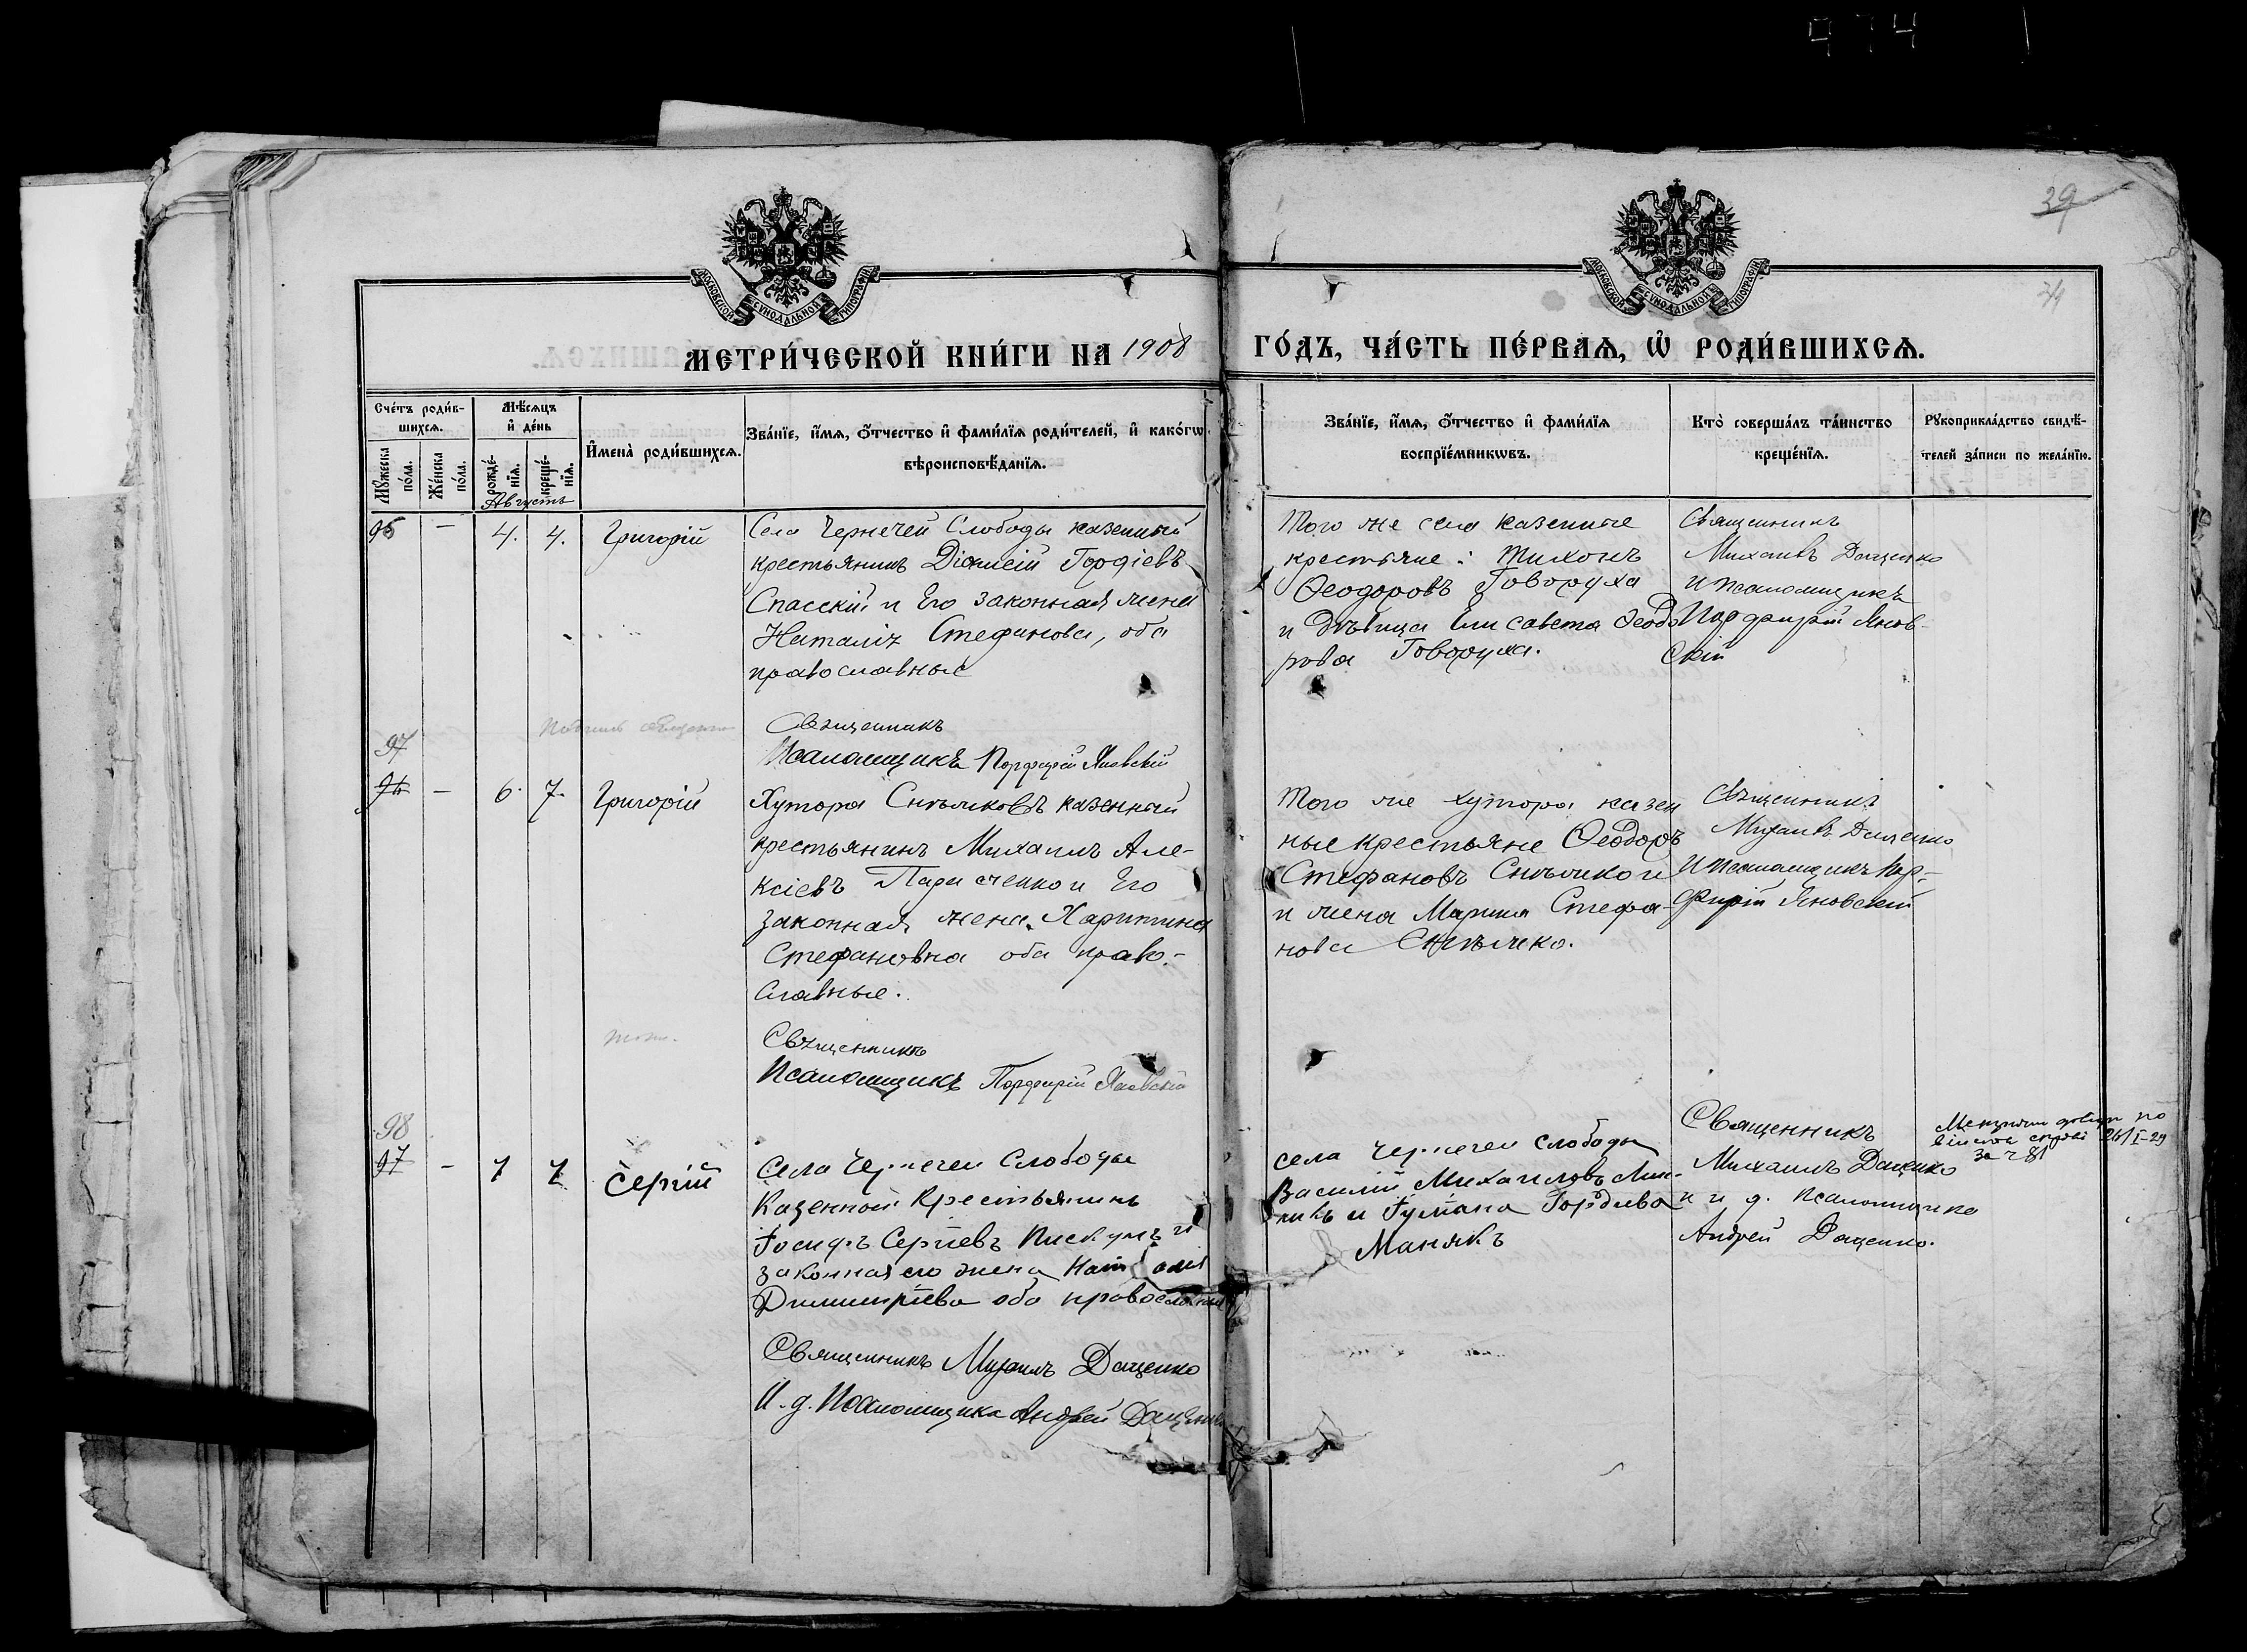 974
39
34
МОСКОВСКОЙ СУНОДАЛЬНОЙ ТИПОГРАФІИ
МОСКОВСКОЙ СУНОДАЛЬНОЙ ТИПОГРАФІИ
МЕТРИ́ЧЕСКОЙ КНИ́ГИ НА 1908 ГО́ДЪ, ЧА́СТЬ ПЕ́РВАѦ, Ѡ РОДИ́ВШИХСѦ.
Сче́тъ роди́в-
шихсѧ.
Мꙋ́жеска по́ла.
Же́нска по́ла.
Мѣ́сѧцъ
и҆ де́нь
рожде́-
нїѧ.
креще́-
нїѧ.
И҆мена̀ роди́вшихсѧ.
Зва́нїе, и҆́мѧ, ѻ҆́тчество и҆ фами́лїѧ роди́телей, и҆ како́гѡ
вѣроисповѣ́данїѧ.
Зва́нїе, и҆́мѧ, ѻ҆́тчество и҆ фами́лїѧ
воспрїе́мникѡвъ.
Кто̀ соверша́лъ та́инство
креще́нїѧ.
Рꙋкоприкла́дство свидѣ́-
телей за́писи по жела́нїю.
Августъ
96 — 4. 4. Григорій
Села Чернечей Слободы казенный
крестьянинъ Діонисій Гордіевъ
Спасскій и Его законная жена
Наталія Стефанова, оба
православные
Того же села казенные
крестьяне: Тихонъ
Ѳеодоровъ Говоруха
и дѣвица Елисавета Ѳеодо
рова Говоруха.
Священникъ
Михаилъ Даценко
и псаломщикъ
Порфирій Янов-
скій
Священникъ
Псаломщикъ Порфирій Яновскій
97
96 — 6. 7. Григорій
Хутора Снѣжковъ казенный
крестьянинъ Михаилъ Але-
ксіевъ и Его
законная жена Харитина
Стефановна оба право-
славные.
Того же хутора казен
ные крестьяне Ѳеодоръ
Стефановъ
и жена Марина Стефа-
нова
Священникъ
Михаилъ Даценко
и псаломщикъ Пор-
фирій Яновскій
тож.
Священникъ
Псаломщикъ Порфирій Яновскій
98
97 — 7 7 Сергій
Села Чернечей Слободы
Казенной Крестьянинъ
Іосифъ Сергіевъ Пискунъ и
законная его жена Наталія
Димитріева оба православные
села Чернечей слободы
Василій Михаиловъ
и Гордіева
Манякъ
Священникъ
Михаилъ Даценко
и и. д. псаломщика
Андрей Даценко.
по
26/I-29
за ч 81
Священникъ Михаилъ Даценко
И. д. Псаломщика Андрей Даценко